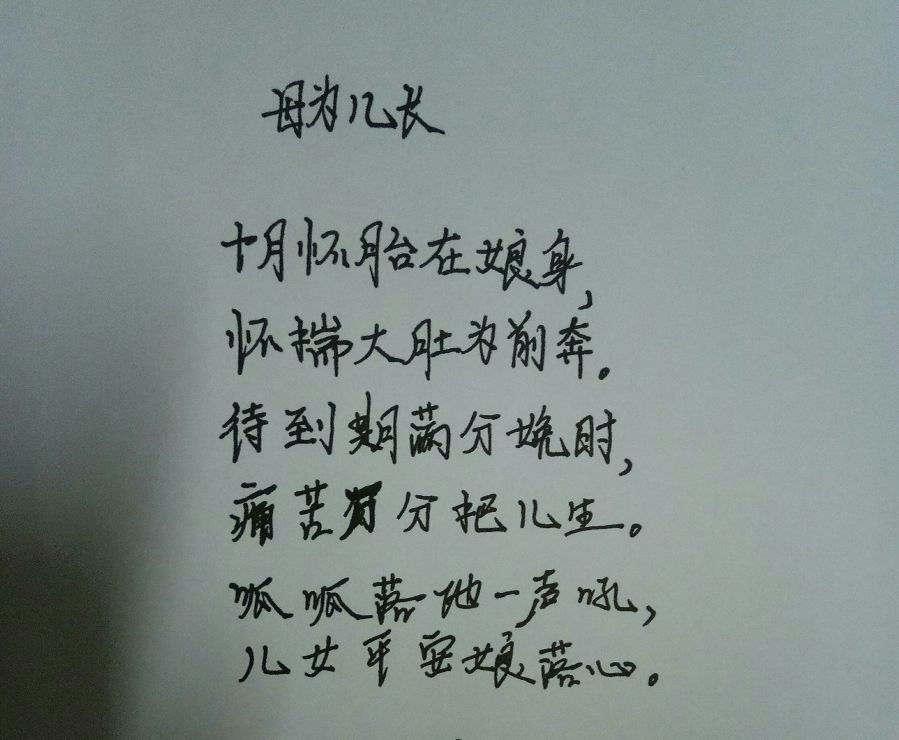 母为儿长
十月怀胎在娘身，
怀揣大肚为前奔。
待到期满分娩时，
痛苦万分把儿生。
呱呱落地一声吼，
儿女平安娘落心。